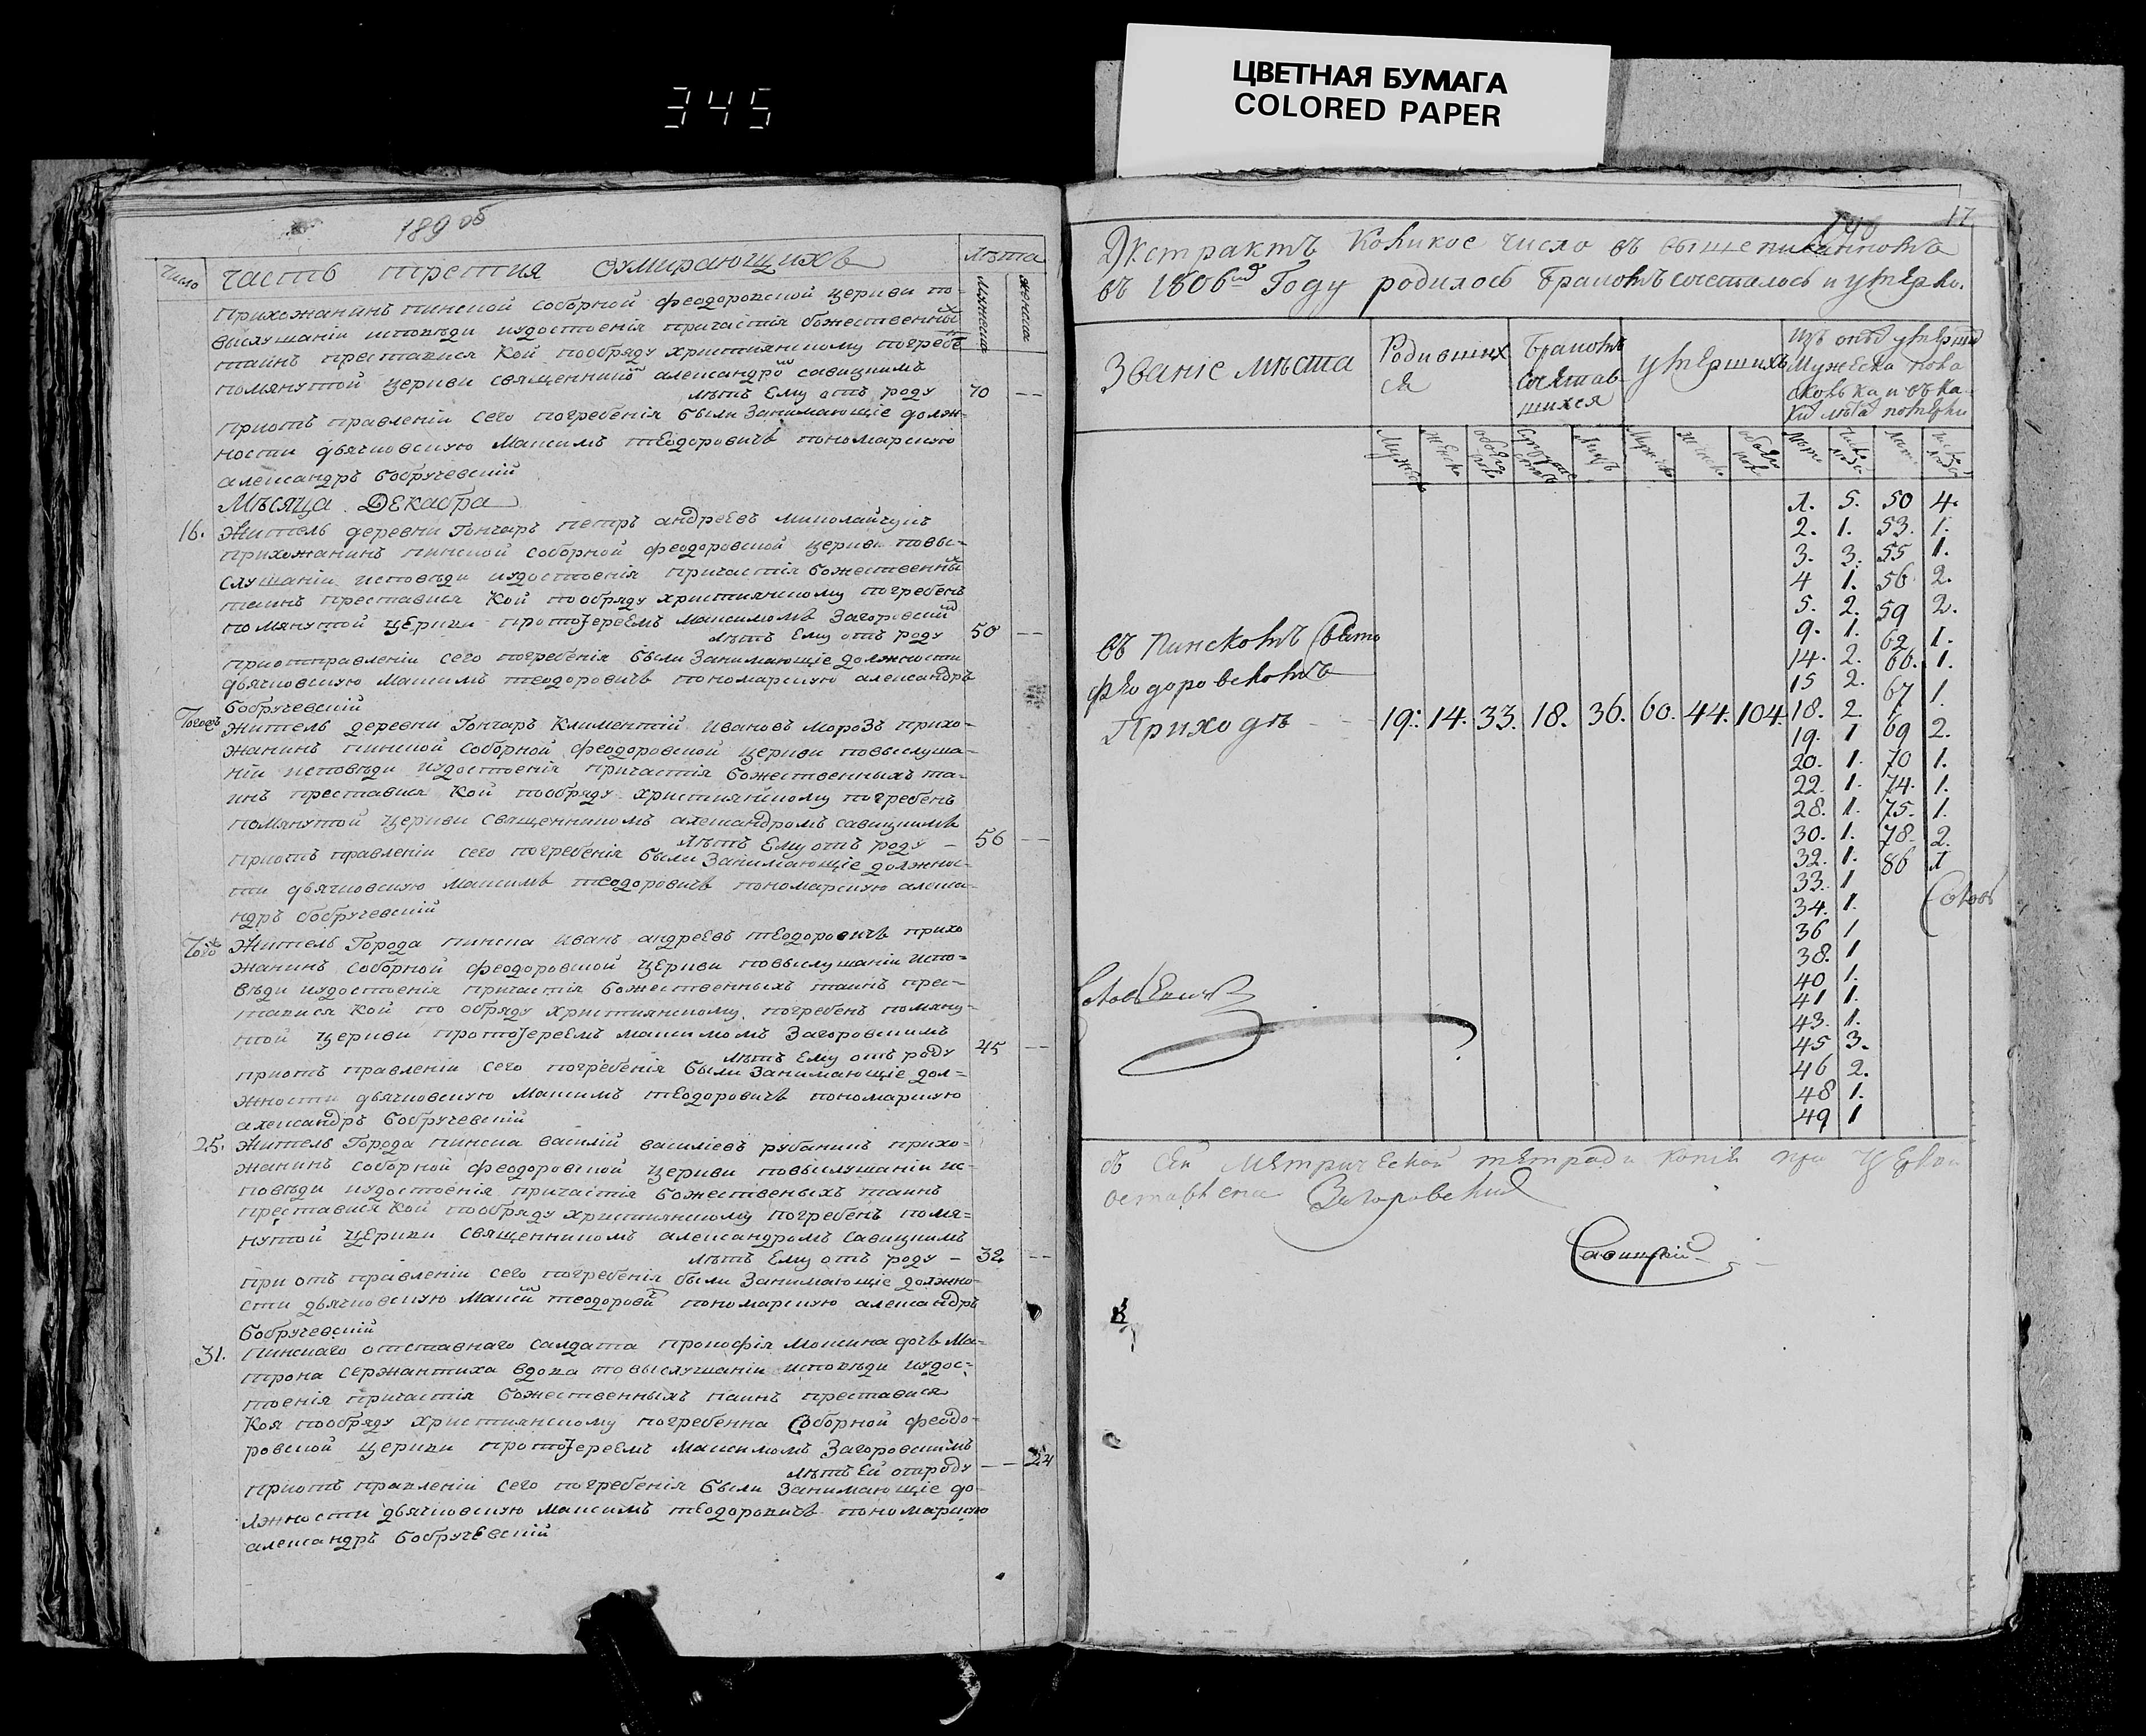 345
ЦВЕТНАЯ БУМАГА
COLORED PAPER
189 об
Число
часть третия оумирающихъ
Лѣта
мужеска
женска
прихожанинъ пинской соборной феодоровской церкви по-
выслушаніи исповѣди иудостоенія причастія божественны
таинъ преставися кой пообряду християнскому погребе
помянутой церкви священнико александро савицкимъ
лѣтъ Ему отъ роду 70 --
приотъ правленіи сего погребенія были Занимающіе долж-
ности дьячковскую Максимъ теодоровичъ пономарскую
александръ бобручевскій
Мѣсяца Декабра
16. Житель деревни Гончаръ петръ андреевъ миколайчукъ
прихожанинъ пинской соборной феодоровской церкви повы-
слушаніи исповѣди иудостоенія причастія божественны
таинъ преставися Кой пообряду християнскому погребенъ
помянутой церкви протоіереемъ максимомъ Загоровски
лѣтъ Ему отъ роду 50 --
приотправленіи сего погребенія были Занимающіе должности
дьячковскую Максимъ теодоровичъ пономарскую александръ
бобручевскій
Тогожъ Житель деревни Гончаръ Климентій Ивановъ морозъ прихо-
жанинъ пинской соборной феодоровской церкви повыслуша-
ніи исповѣди иудостоенія причастія божественныхъ та-
инъ преставися Кой пообряду християнскому погребенъ
помянутой церкви священникомъ александромъ савицкимъ
лѣтъ Ему отъ роду - 56 --
приотъ правленіи сего погребенія были Занимающіе должнос-
ти дьячковскую Максимъ теодоровичъ пономарскую алекса-
ндръ бобручевскій
Того Житель Города пинска иванъ андреевъ теодоровичъ прихо
жанинъ соборной феодоровской церкви повыслушаніи испо-
вѣди иудостоенія причастія божественныхъ таинъ прес-
тавися Кой по обряду християнскому погребенъ помяну-
той церкви протоіереемъ максимомъ Загоровскимъ
лѣтъ Ему отъ роду 45 --
приотъ правленіи сего погребенія были Занимающіе дол-
жности дьячковскую Максимъ теодоровичъ пономарскую
александръ бобручевскій
25. Житель Города пинска василій василіевъ рубаникъ прихо-
жанинъ соборной феодоровской церкви повыслушаніи ис-
повѣди иудостоенія причастія божественыхъ таинъ
преставися Кой пообряду християнскому погребенъ помя-
нутой церкви священникомъ александромъ савицкимъ
лѣтъ Ему отъ роду - 32 --
при отъ правленіи сего погребенія были Занимающіе должно-
сти дьячковскую Макси теодорови пономарскую александръ
бобручевскій
31. пинскаго отставнаго салдата прокофія мокина дочь Ма-
трона сержантиха вдова повыслушаніи исповѣди иудос-
тоенія причастія божественныхъ таинъ преставися
Коя пообряду християнскому погребенна Соборной феодо-
ровской церкви протоіереемъ Максимомъ Загоровскимъ
лѣтъ Ей отроду -- 24
приотъ правленіи сего погребенія были Занимающіе до-
лжности дьячковскую максимъ теодоровичъ пономарскую
александръ бобручевскій
17
190
Экстрактъ Коликое число въ вышеписанномъ
въ 1806мъ Году родилось браковъ сочеталось и умерло.
Званіе мѣста
Родивших
ся
браковъ
сочетав-
шихся
умершихъ
Изъ оныхъ умерши
Мужеска пола
сколька и въ ка-
ки лѣта померли
Мужеск
женск
обоего пол
супружествъ
Лицъ
Мужеск
женск
обоего пол
Лѣта
Число люд
Лѣта
число люд
1. 5. 50 4.
2. 1. 53. 1.
3. 3. 55 1.
4 1. 56. 2.
5. 2. 59 2.
9. 1. 62 1.
14. 2. 66. 1.
15 2. 67 1.
въ Пинсковъ Свято
феодоровскомъ
Приходѣ - - 19. 14. 33. 18. 36. 60. 44. 104.
18. 2. 69 2.
19. 1 70 1.
20. 1. 74. 1.
22. 1. 75. 1.
28. 1. 78. 2.
30. 1. 86 1
32. 1.
33. 1
34. 1.
36 1
38. 1
40 1.
41 1.
43. 1.
45 3.
46 2.
48 1.
49 1
въ сей метрической тетради копія при церкви
оставлена Загоровскій
Савицкій